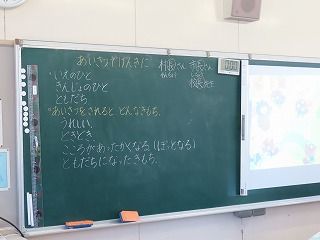 あいさつでげんきに
・いえのひと
きんじょのひと
ともだち
・あいさつをされると どんなきもち。
うれしい。
どきどき
こころがあったかくなる(ぽっとなる)
ともだちになったきもち。
村国さん 市長さん
校長先生